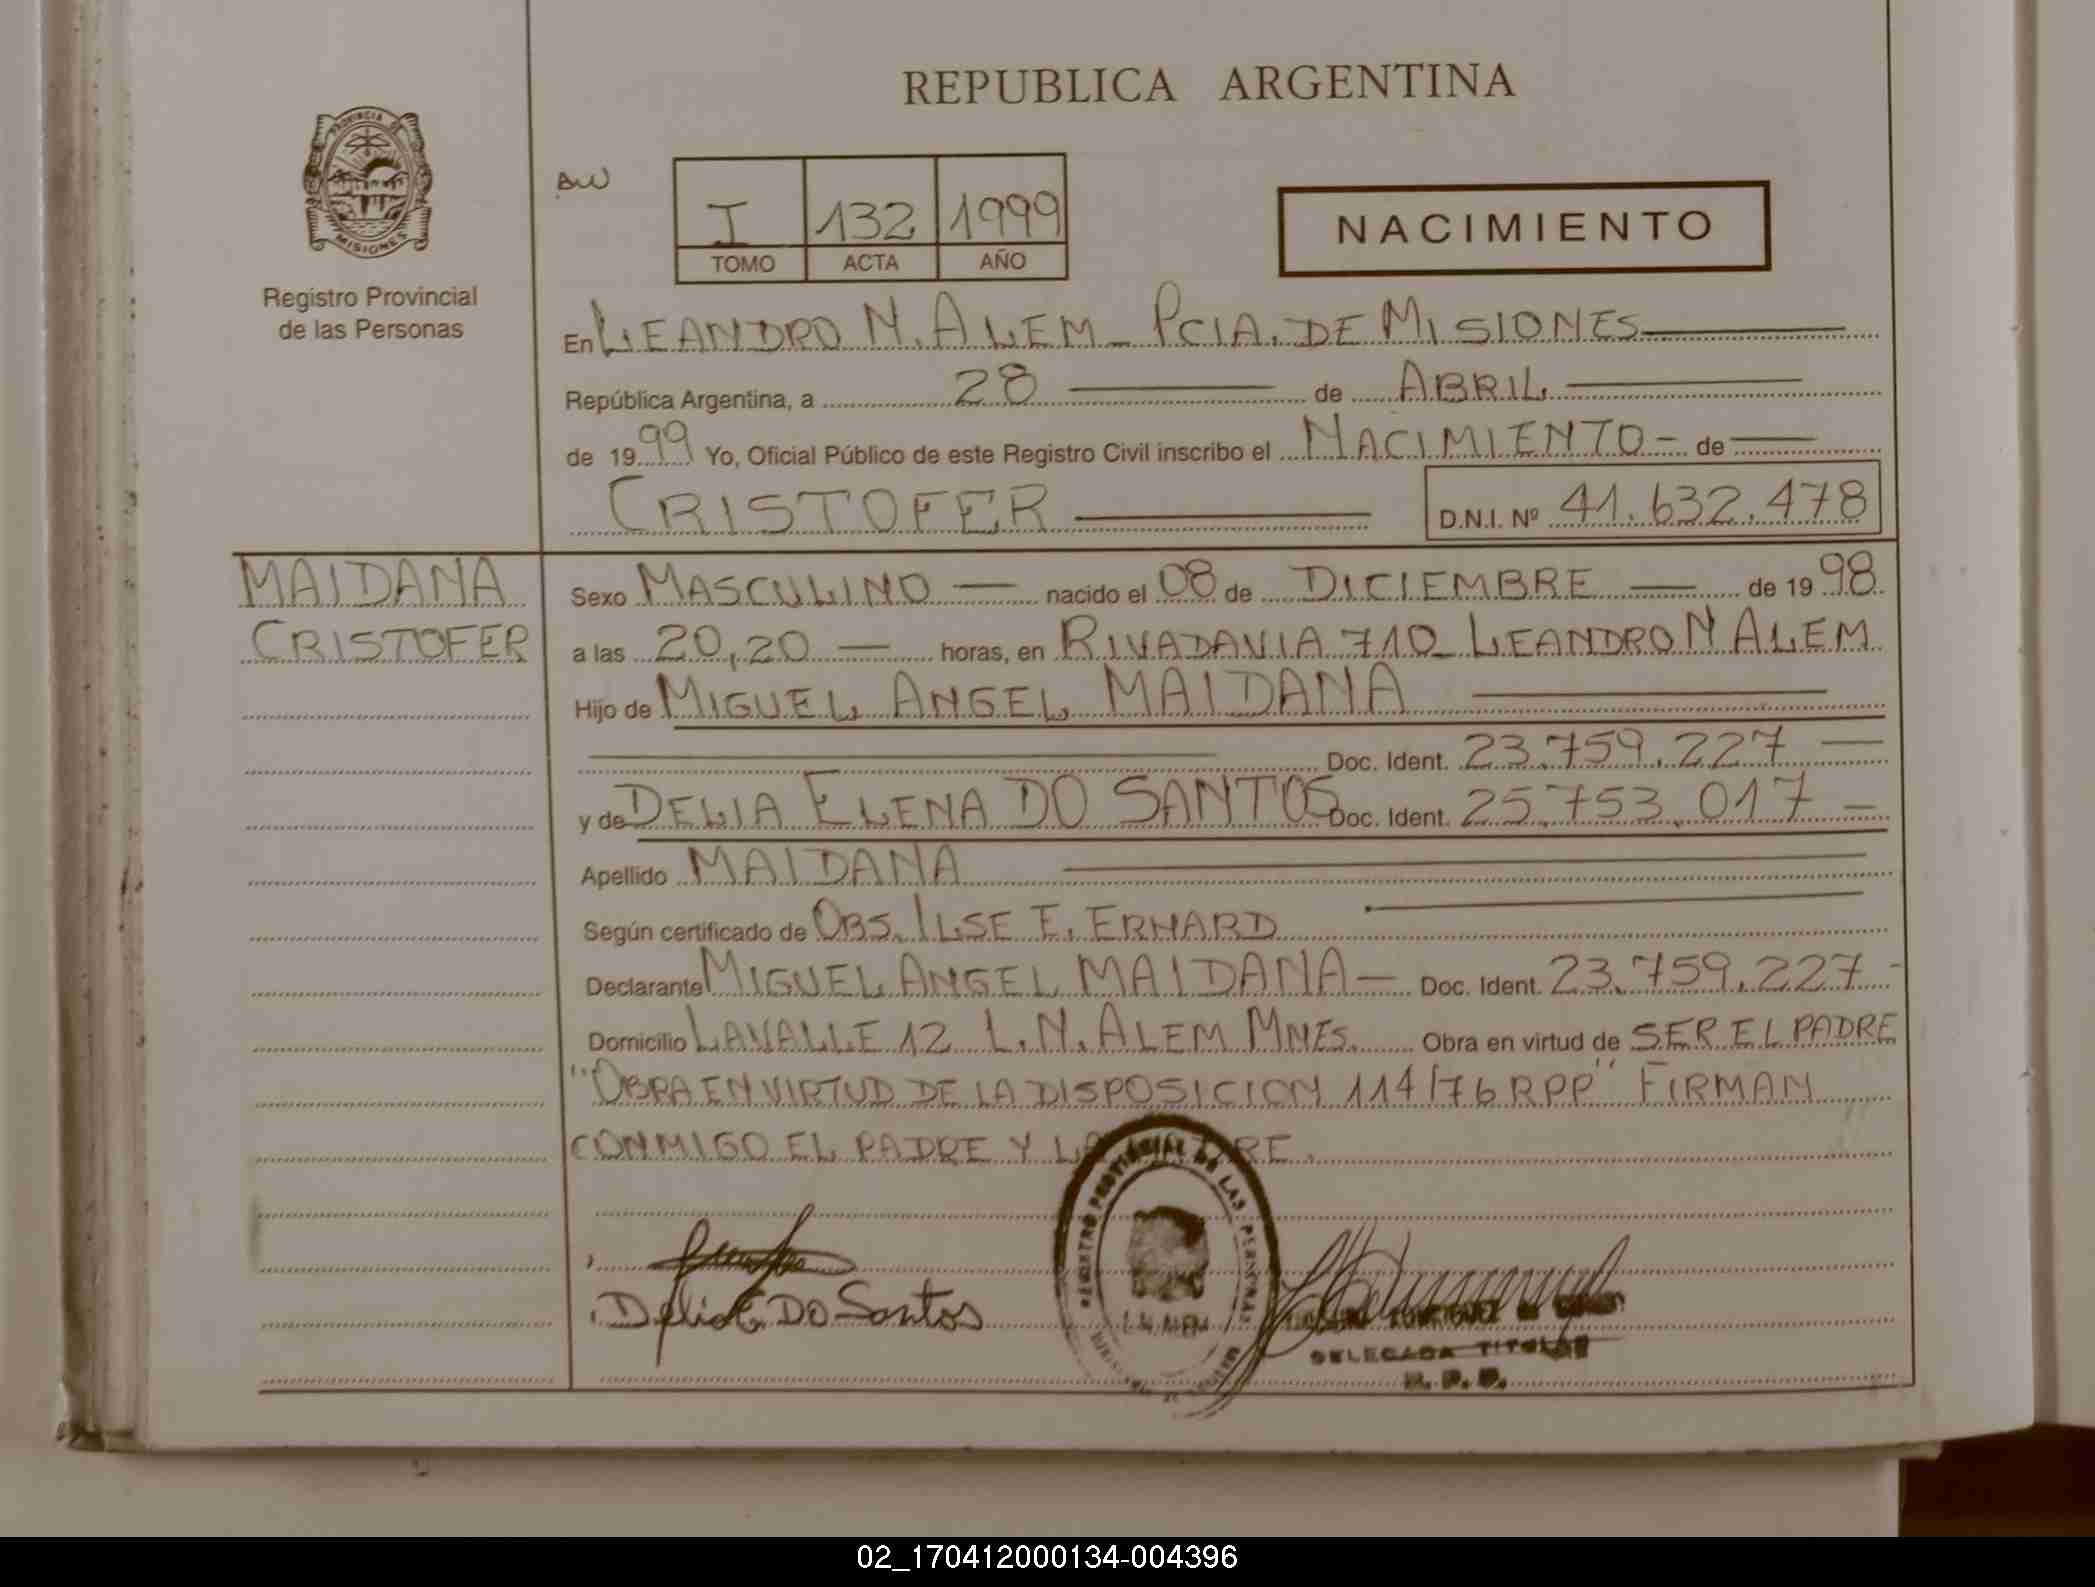 REPUBLICA ARGENTINA
PROVINCIA DE
MISIONES
Registro Provincial
de las Personas
I 132 1999
TOMO ACTA AÑO
NACIMIENTO
En LEANDRO N. ALEM_ PCIA. DE MISIONES
República Argentina, a 28 de ABRIL
de 1999 Yo, Oficial Público de este Registro Civil inscribo el NACIMIENTO - de
CRISTOFER D.N.I. Nº 41.632.478
MAIDANA
CRISTOFER
Sexo MASCULINO nacido el 08 de DICIEMBRE de 1998
a las 20,20 horas, en RIVADAVIA 710_ LEANDRO N ALEM
Hijo de MIGUEL ANGEL MAIDANA
Doc. Ident. 23.759.227
y de DELIA ELENA DO SANTOS Doc. Ident. 25.753.017
Apellido MAIDANA
Según certificado de OBS. ILSE E. ERHARD
Declarante MIGUEL ANGEL MAIDANA Doc. Ident. 23.759.227
Domicilio LAVALLE 12 L.N. ALEM MNES. Obra en virtud de SER EL PADRE
"OBRA EN VIRTUD DE LA DISPOSICION 114/76 RPP" FIRMAN
CONMIGO EL PADRE Y LA MADRE.
REGISTRO PROVINCIAL DE LAS PERSONAS
Delia E DO Santos
DELEGADA TITULAR
R. P. P.
02_170412000134-004396